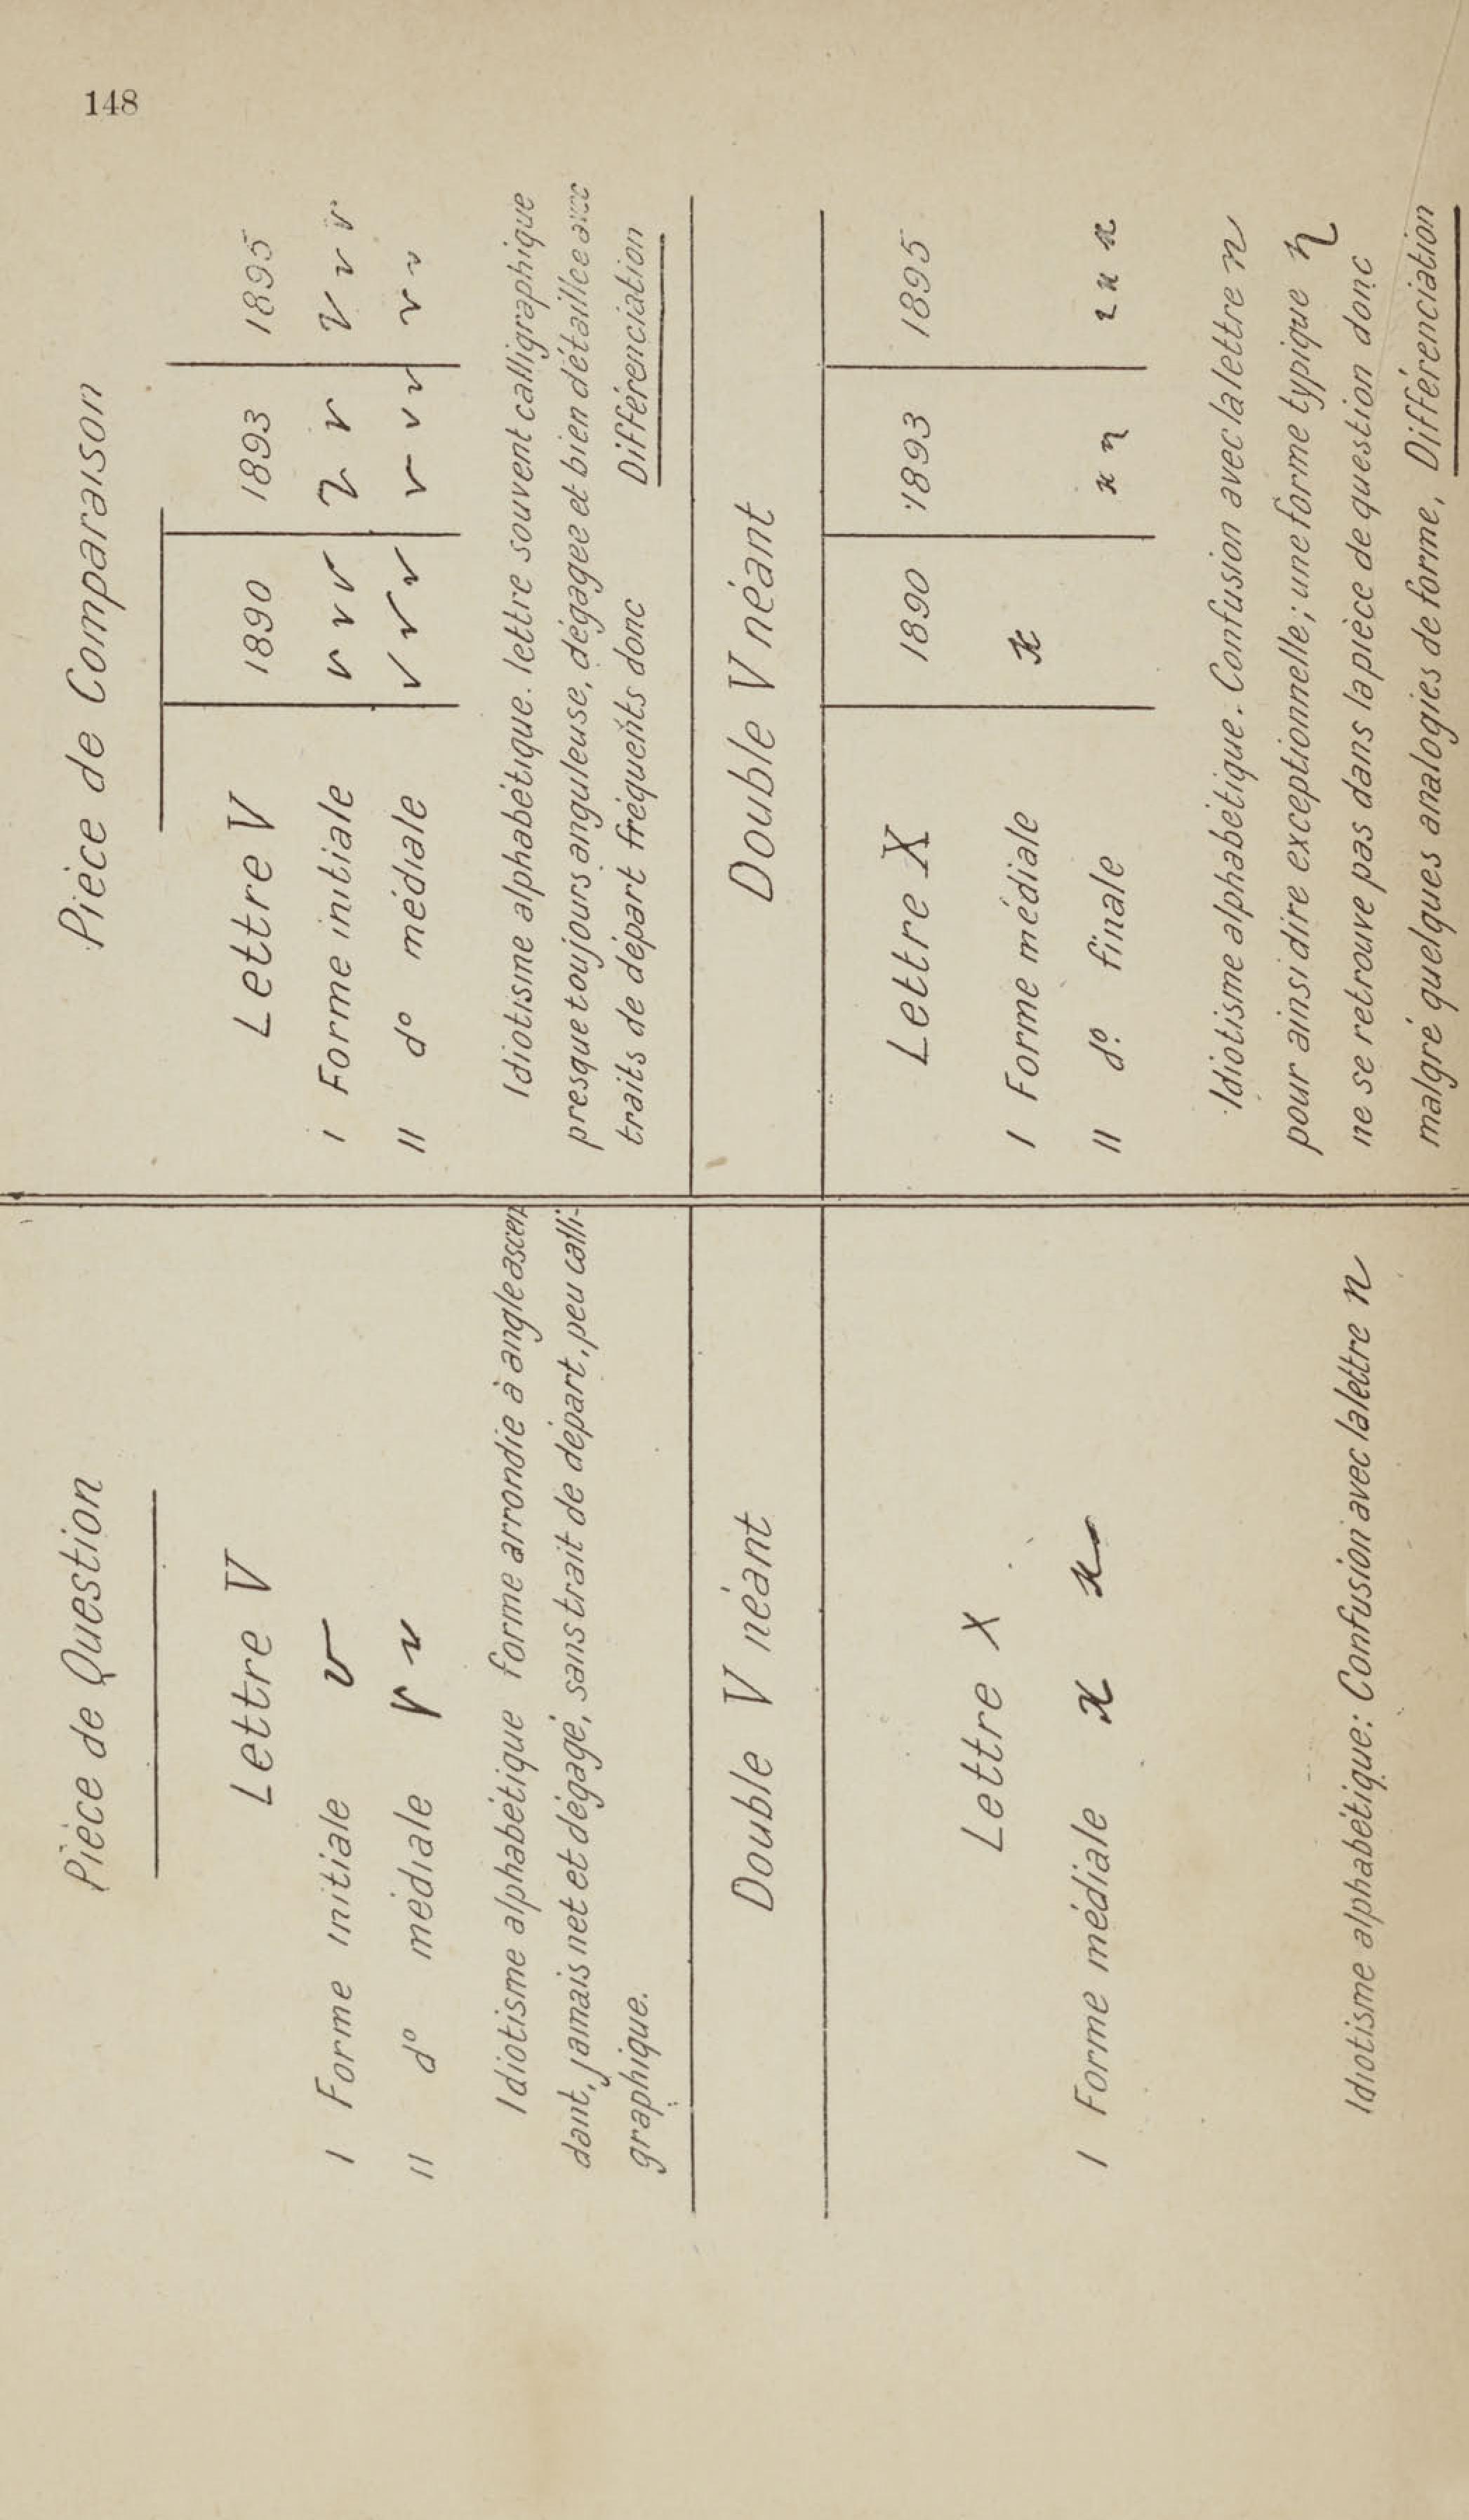 148
Pièce de Question
Lettre V
I Forme initiale v
II d° médiale v v
Idiotisme alphabétique forme arrondie à angle ascen
dant, jamais net et dégagé, sans trait de départ, peu calli-
graphique.
Double V néant
Lettre X
I Forme médiale x x
Idiotisme alphabétique: Confusion avec la lettre n
Pièce de Comparaison
Lettre V 1890 1893 1895
I Forme initiale v v v v v v v v
II d° médiale v v v v v v v v
Idiotisme alphabétique. lettre souvent calligraphique
presque toujours anguleuse, dégagée et bien détaillée avec
traits de départ fréquents donc Différenciation
Double V néant
Lettre X 1890 1893 1895
I Forme médiale x
II d° finale x x x x x
Idiotisme alphabétique. Confusion avec la lettre n
pour ainsi dire exceptionnelle; une forme typique η
ne se retrouve pas dans la pièce de question donc
malgré quelques analogies de forme, Différenciation